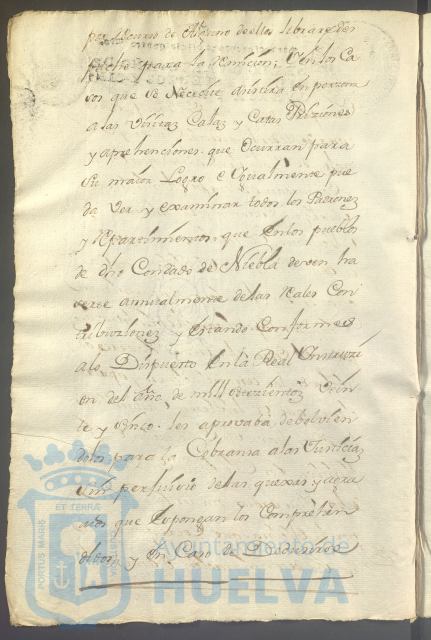 por recurso de alguno de ellos librare des
pacho para la remicion; en los Ca
sos que se Necesite asistira en perzona
a las Visitas Calas y Catas Priziones
y aprehenciones que Ocurran para
Su maior Logro e Igualmente pue
da Ver y examinar todos los Padrones
y Repartimientos que en los pueblos
de dho Condado de Niebla deven ha
zerse anualmente de las Reales Con
tribuziones y estando Conformes
a lo Dispuesto en la Real Instruczi
on del Año de mill setezientos Vein
te y cinco les aprovara debolvien
dolos para la Cobranza a las Justicias
sin perjuicio de las quexas y agra
vios que expongan los Comprehen
didos y en Caso de
PORTUS MARIS ET TERRAE CUSTODIA
Ayuntamiento de
HUELVA